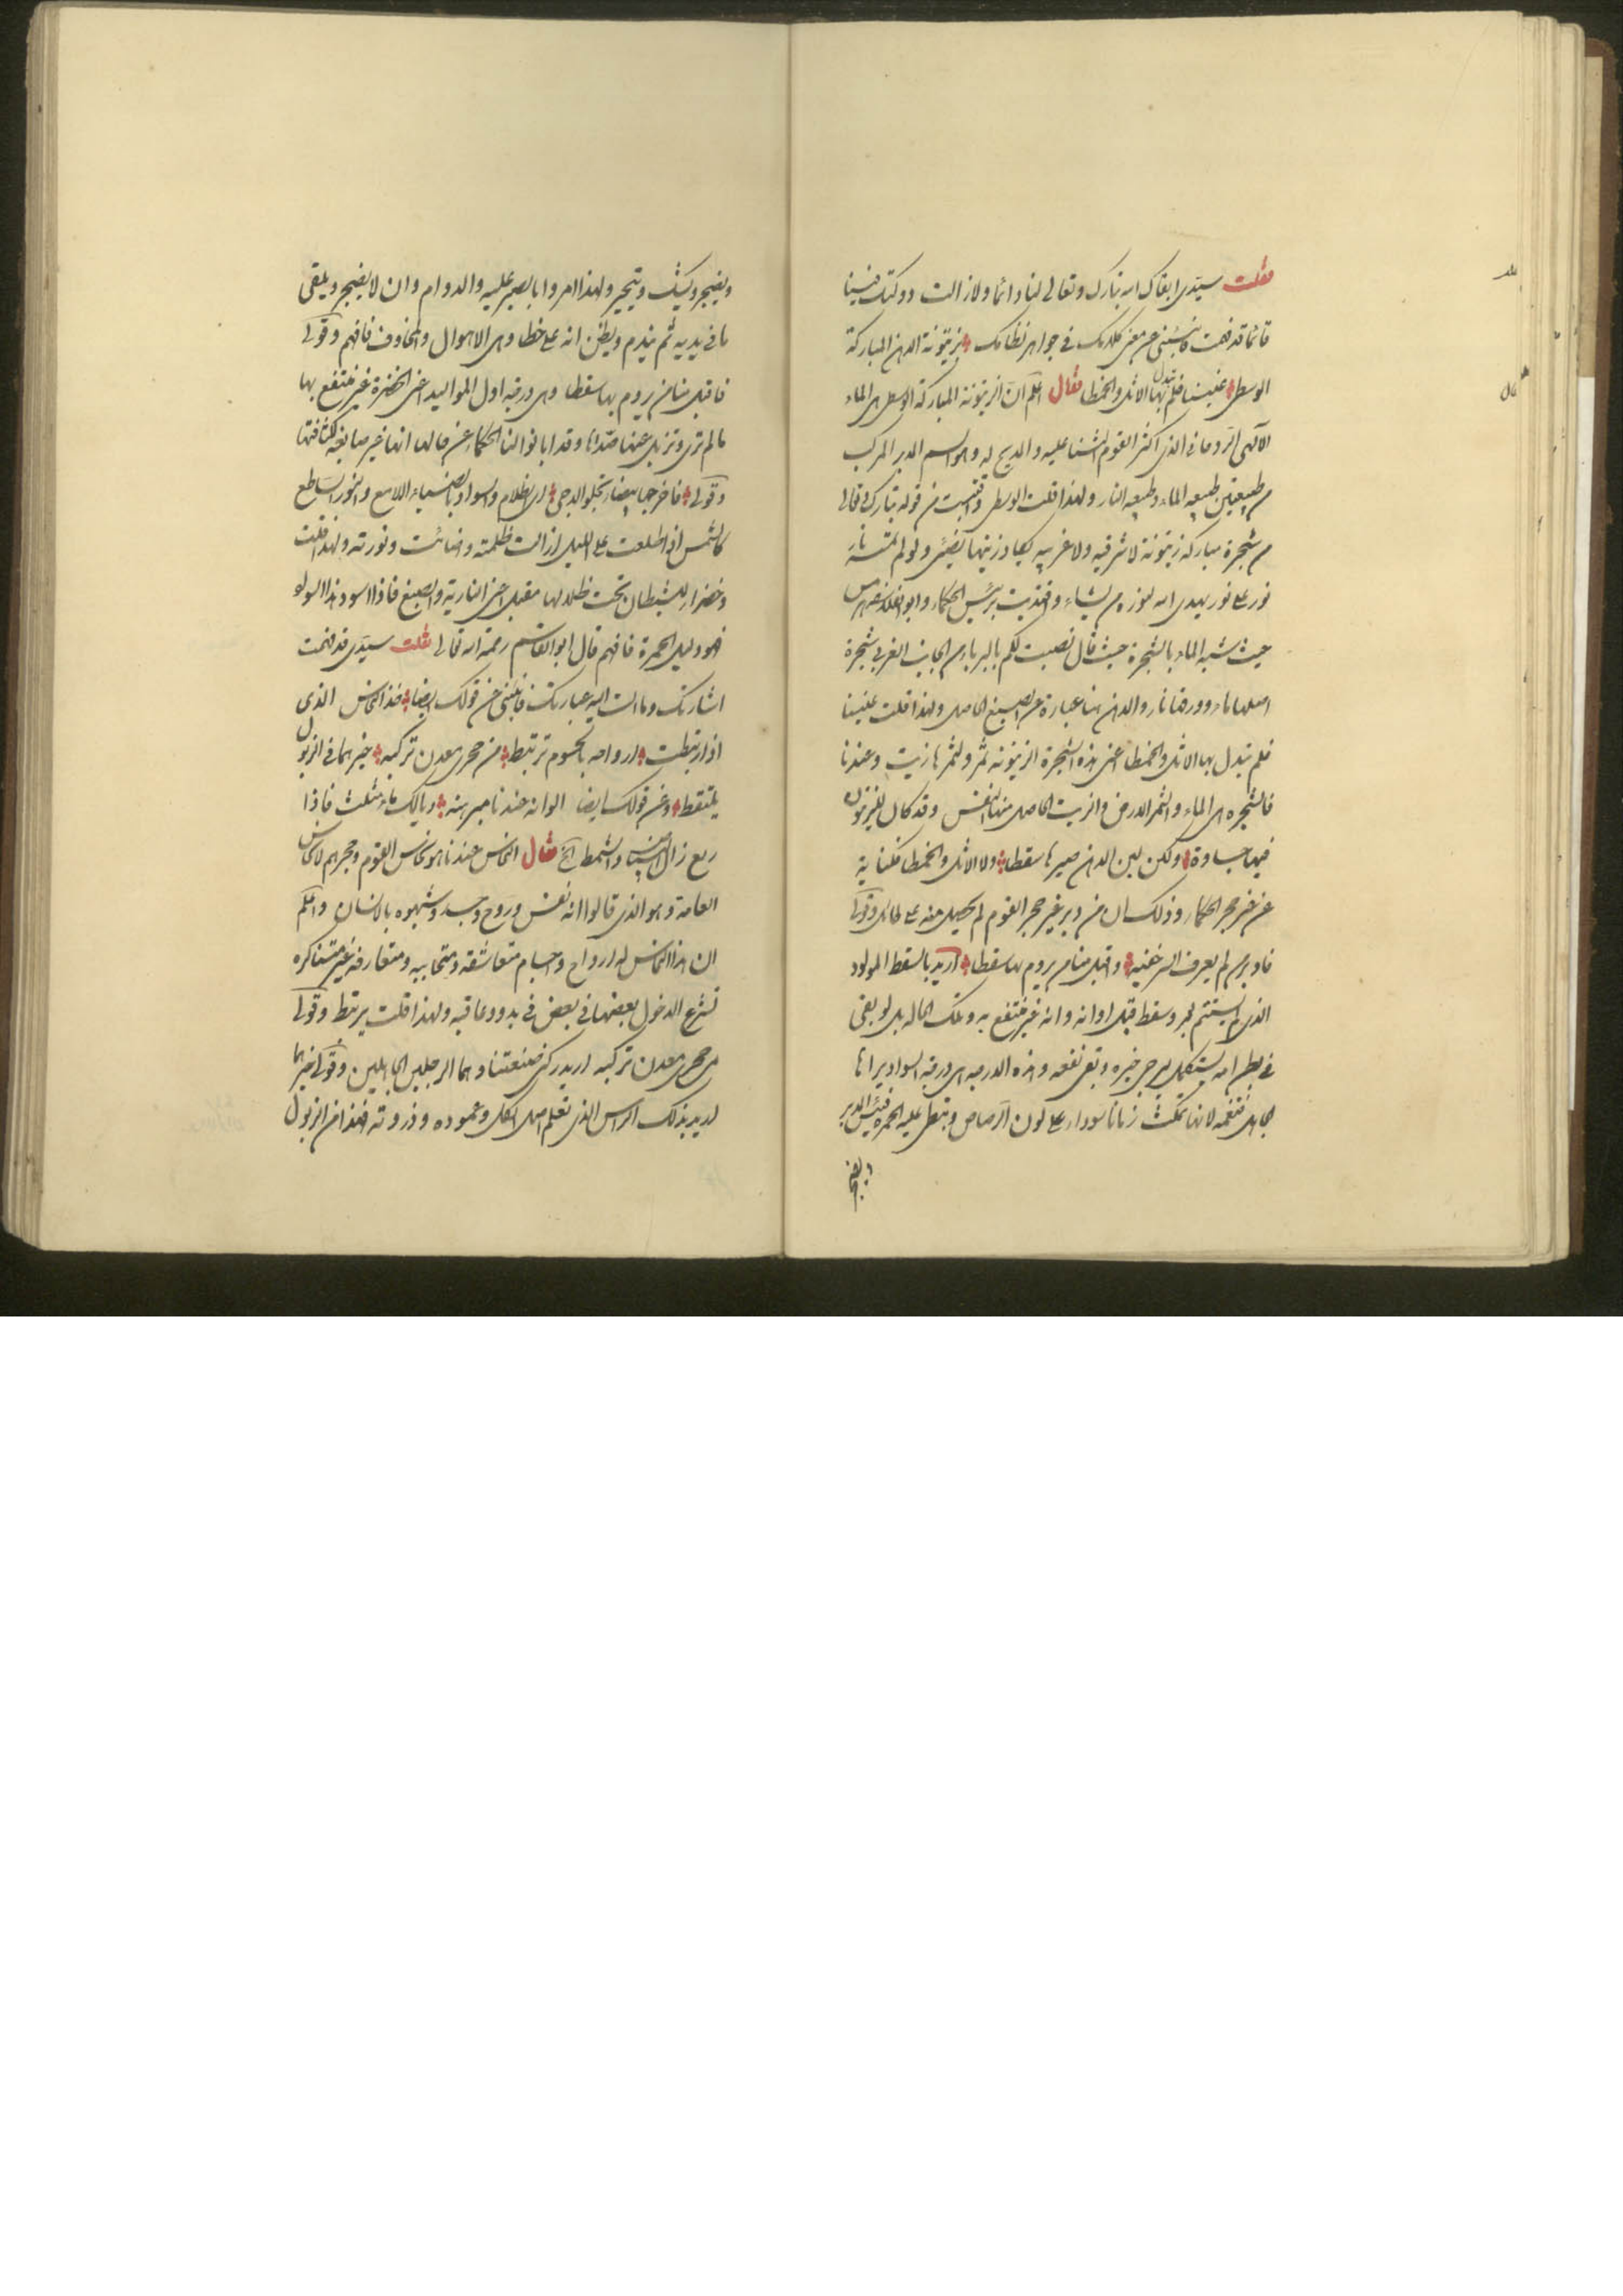 فقلت سيدى ابقاك الله تبارك وتعالى لنا دائما ولا زالت دولتك فينا
قائما قد فهمت فانبئنى عن معنى كلامك فى جواهر نظامك بزيتونة الدهن المباركة
الوسطى غنينا فلم نبدل بها الاثل والخمطا فقال اعلم ان الزيتونة المباركة الوسطى هى الماء
الالهى الروحانى الذى اكثر القوم الثنا عليه والمديح له وهو اسم المدبر المركب
من طبيعتين طبيعه الماء وطبيعه النار ولهذا قلت الوسطى واقتبست من قوله تبارك وتعالى
من شجرة مباركة زيتونة لا شرقيه ولا غربيه يكاد زيتها يضىء ولو لم تمسسه نار
نور على نور يهدى الله لنوره من يشاء واقتديت برئيس الحكماء وابو الفلاسفه هرمس
حيث شبه الماء بالشجرة حيث قال نصبت لكم بالبرباء من الجانب الغربى شجرة
اصلها ماء وورقها نار والدهن هنا عبارة عن الصبغ الحاصل ولهذا قلت غنينا
فلم نبدل بها الاثل والخمطا اعنى هذه الشجرة الزيتونه ثمر ولثمرها زيت وعندنا
فالشجره هى الماء والثمر الارض والزيت الحاصل منهما النفس وقد كان للزيتون
فيها جساوة ولكن لين الدهن صيرها سقطا ولا الاثل والخمطا فكناية
عن غير حجر الحكماء وذلك ان من دبر غير حجر القوم لم يحصل منه على طائل وقولى
فاوبر من لم يعرف السر غنيه واقبل منا من يروم بها سقطا اريد بالسقط المولود
الذى لم يستتم اجر وسقط قبل اوانه وانه غير منتفع به وتلك الحاله بل لو بقى
فى بطن امه يستكمل يرجى خيره وبقى نفعه وهذه الدرجه هى درجة السواد يراها
الجاهل فتغمه لانها تمكث زمانا سوداء على لون الرصاص وتبطى عليه الحمره فييئس المدبر
ويضجر
ويضجر ويشك ويتحير ولهذا امروا بالصبر عليه والدوام وان لا يضجر ويلقى
ما فى يديه ثم يندم ويظن انه على خطا وهى الاهوال والمخاوف فافهم وقولى
فاقبل منا من يروم بها سقطا وهى درجة اول المواليد اعنى الخضرة غير منتفع بها
ما لم ترى وتزيل عنها صداها وقد ابانوا لنا الحكماء عن حالها انها غير صابغه لكثافتها
وقولى فاخرجها بيضاء تجلو الدجى اى الظلام والسواد بالضياء اللامع والنور الساطع
كالشمس اذا طلعت على الليل ازالت ظلمته واضائت ونورته ولهذا قلت
وخضراء للشيطان تحت ظلالها مقيل اعنى النارية والصبغ فاذا اسود هذا السواد
فهو دليل الحمرة فافهم قال ابو القاسم رحمة الله تعالى فقلت سيدى قد فهمت
اشارتك وما الت اليه عبارتك فانبئنى عن قولك ايضا فخذ النحاس الذى
اذا ارتبطت ارواحه بالجسوم ترتبط من حجرى معدن تركبه خيرهما فى الزبول
يلتقط وعن قولك ايضا الوانه عندنا مبرهنه وبالك ماء مثلث فاذا
ربع زال المشيب والشمط الخ فقال النحاس عندنا هو نحاس القوم وحجرهم لا نحاس
العامة وهو الذى قالوا انه نفس وروح وجسد وشبهوه بالانسان واعلم
ان هذا النحاس له ارواح واجسام متعاشقه ومتحاببه ومتعارفه غير متناكره
تسرع الدخول بعضها فى بعض فى بدو وعاقبه ولهذا قلت يرتبط وقولى
من حجرى معدن تركبه اريد ركنى صنعتنا وهما الرجلين الجاهلين وقولى خيرهما
اريد بذلك الراس الذى تعلم اصل الكل وعموده وذروته فخذ من الزبول